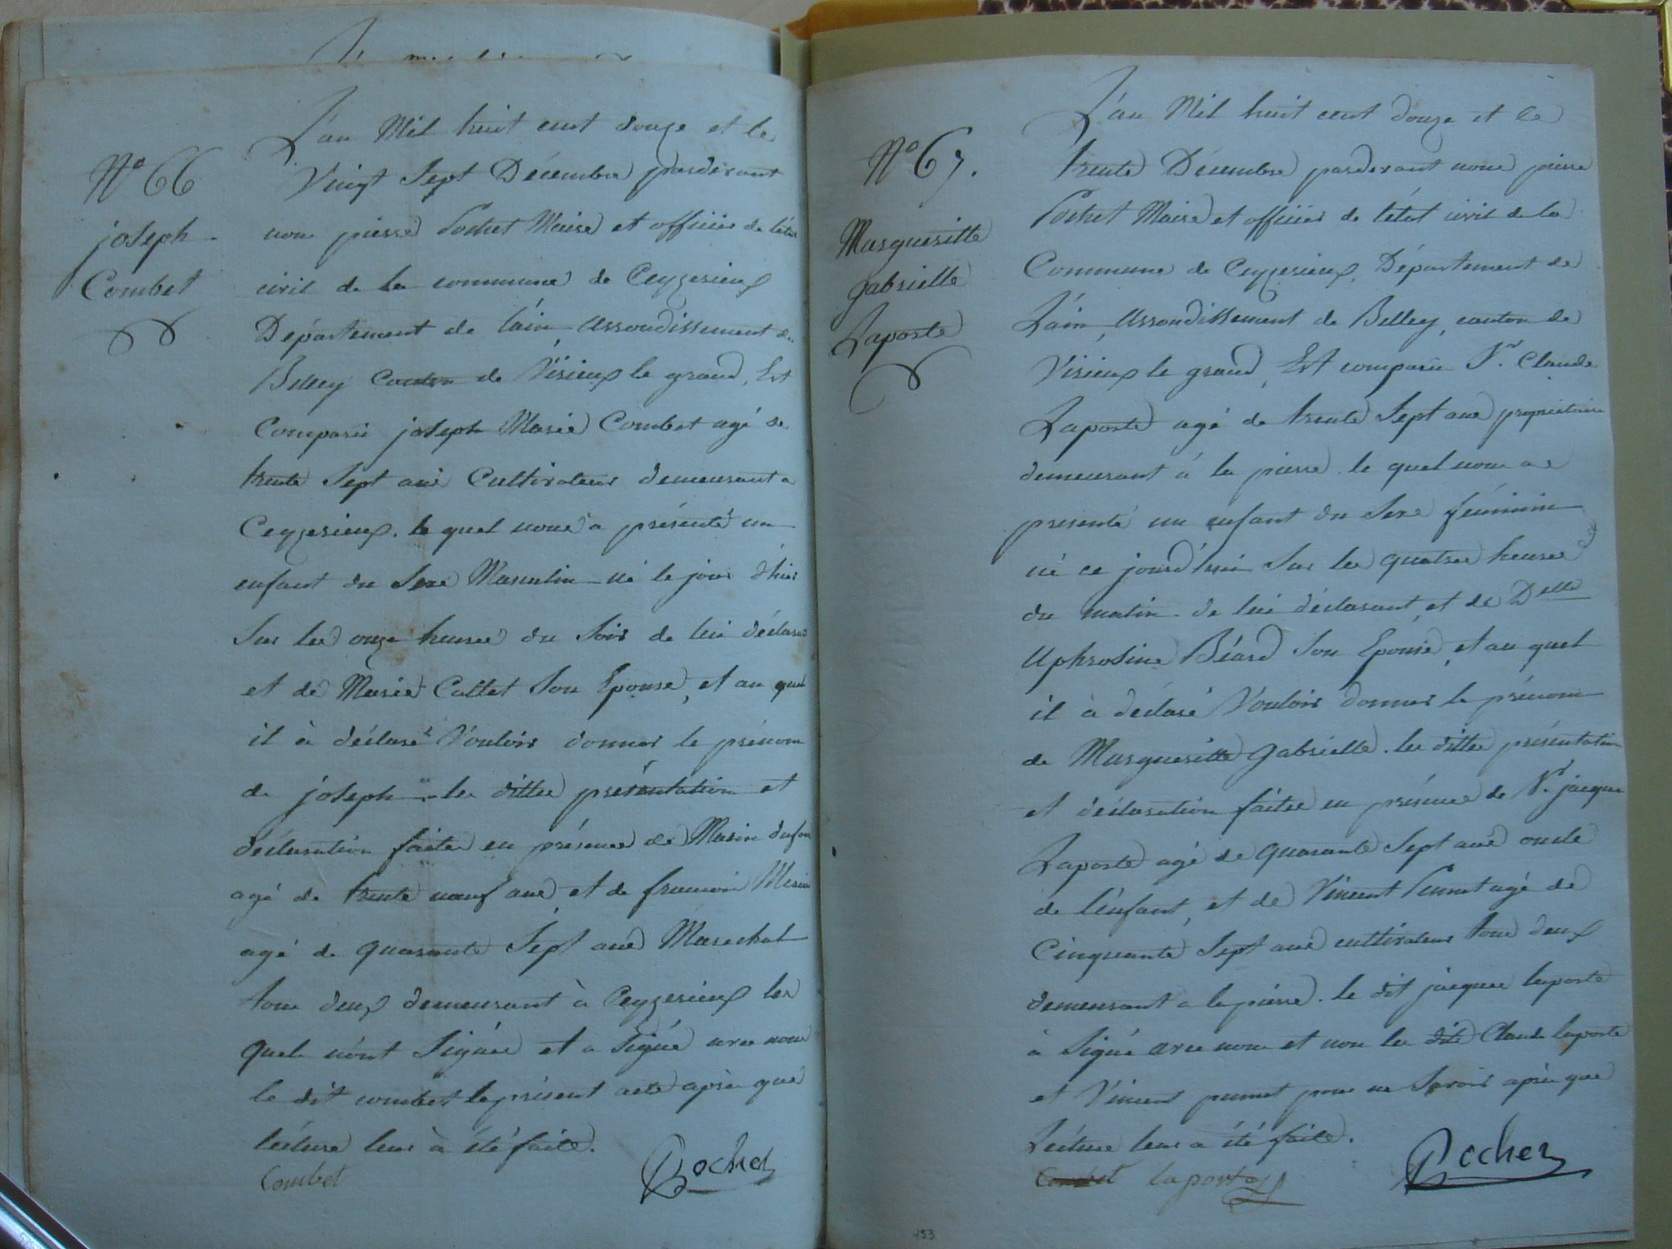 N° 66
joseph
Combet
L'an Mil huit cent douze et le
Vingt Sept Décembre pardevant
nous pierre Pochet Maire et officier de l'état
civil de la commune de Ceyzerieux
Département de l'ain arrondissement de
Belley Canton de Virieux le grand, Est
Comparu joseph Marie Combet agé de
trente Sept ans Cultivateur demeurant a
Ceyzerieux. le quel nous a présenté un
enfant du Sexe Masculin né le jour d'hier
Sur les onze heures du Soir de lui déclarant
et de Marie Cattet Son Epouse, et au quel
il à déclaré Vouloir donner le prénom
de joseph les dittes présentation et
déclaration faites en présence de Marin
agé de trente neuf ans et de
agé de quarante Sept ans Marechal
tous deux demeurant à Ceyzerieux les
quels n'ont Signés et a Signé avec nous
le dit combet le présent acte après que
lecture leur à été faite.
Combet Pochet
N° 67.
Margueritte
gabrielle
Laporte
L'an Mil huit cent douze et le
trente Décembre pardevant nous pierre
Pochet Maire et officier de l'état civil de la
Commune de Ceyzerieux, Département de
L'ain, Arrondissement de Belley, canton de
Virieux le grand, Est comparu Sr. Claude
Laporte agé de trente Sept ans propriétaire
demeurant à la pierre le quel nous a
presenté un enfant du Sexe féminin
né ce jourd'hui Sur les quatre heures
du matin de lui déclarant et de Delle
Uphrosine Béard Son Epouse, et au quel
il à déclaré Vouloir donner le prénom
de Margueritte gabrielle. les dittes présentation
et déclaration faites en présence de Sr. jacques
Laporte agé de quarante Sept ans oncle
de l'enfant, et de Vincent agé de
Cinquante Sept ans cultivateur tous deux
demeurant a la pierre. le dit jacques laporte
à Signé avec nous et non les dits Claude laporte
et Vincent pour ne Savoir après que
Lecture leur a été faite.
Combet laporte Pochet
153